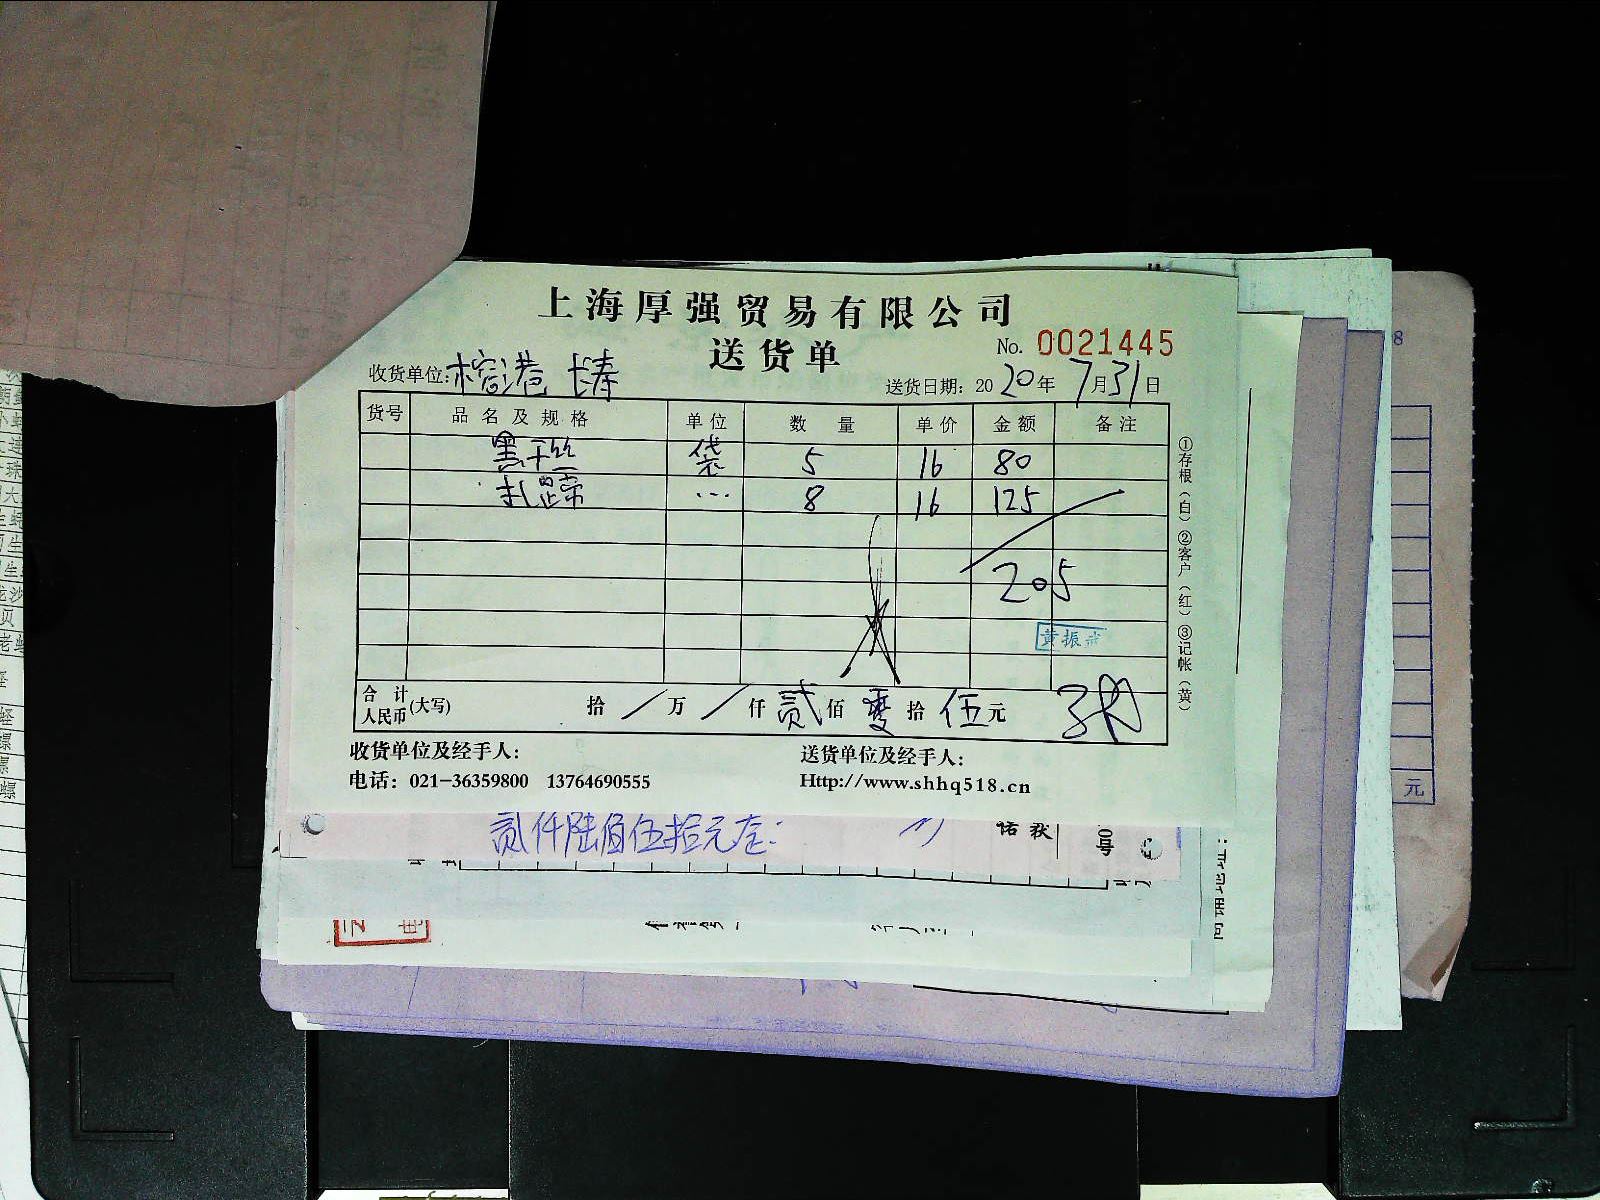 上海厚强贸易有限公司
送货单
No. 0021445
收货单位:榕港 长寿
送货日期: 2020年7月31日
货号 品名及规格 单位 数量 单价 金额 备注
黑干丝 袋 5 16 80
扎蹄 … 8 16 125
205
黄振
合计人民币(大写) 拾/万/仟贰佰零拾伍元
收货单位及经手人:
送货单位及经手人:
电话: 021-36359800 13764690555
Http://www.shhq518.cn
①存根(白)②客户(红)③记帐(黄)
贰仟陆佰伍拾元整
号
元
8